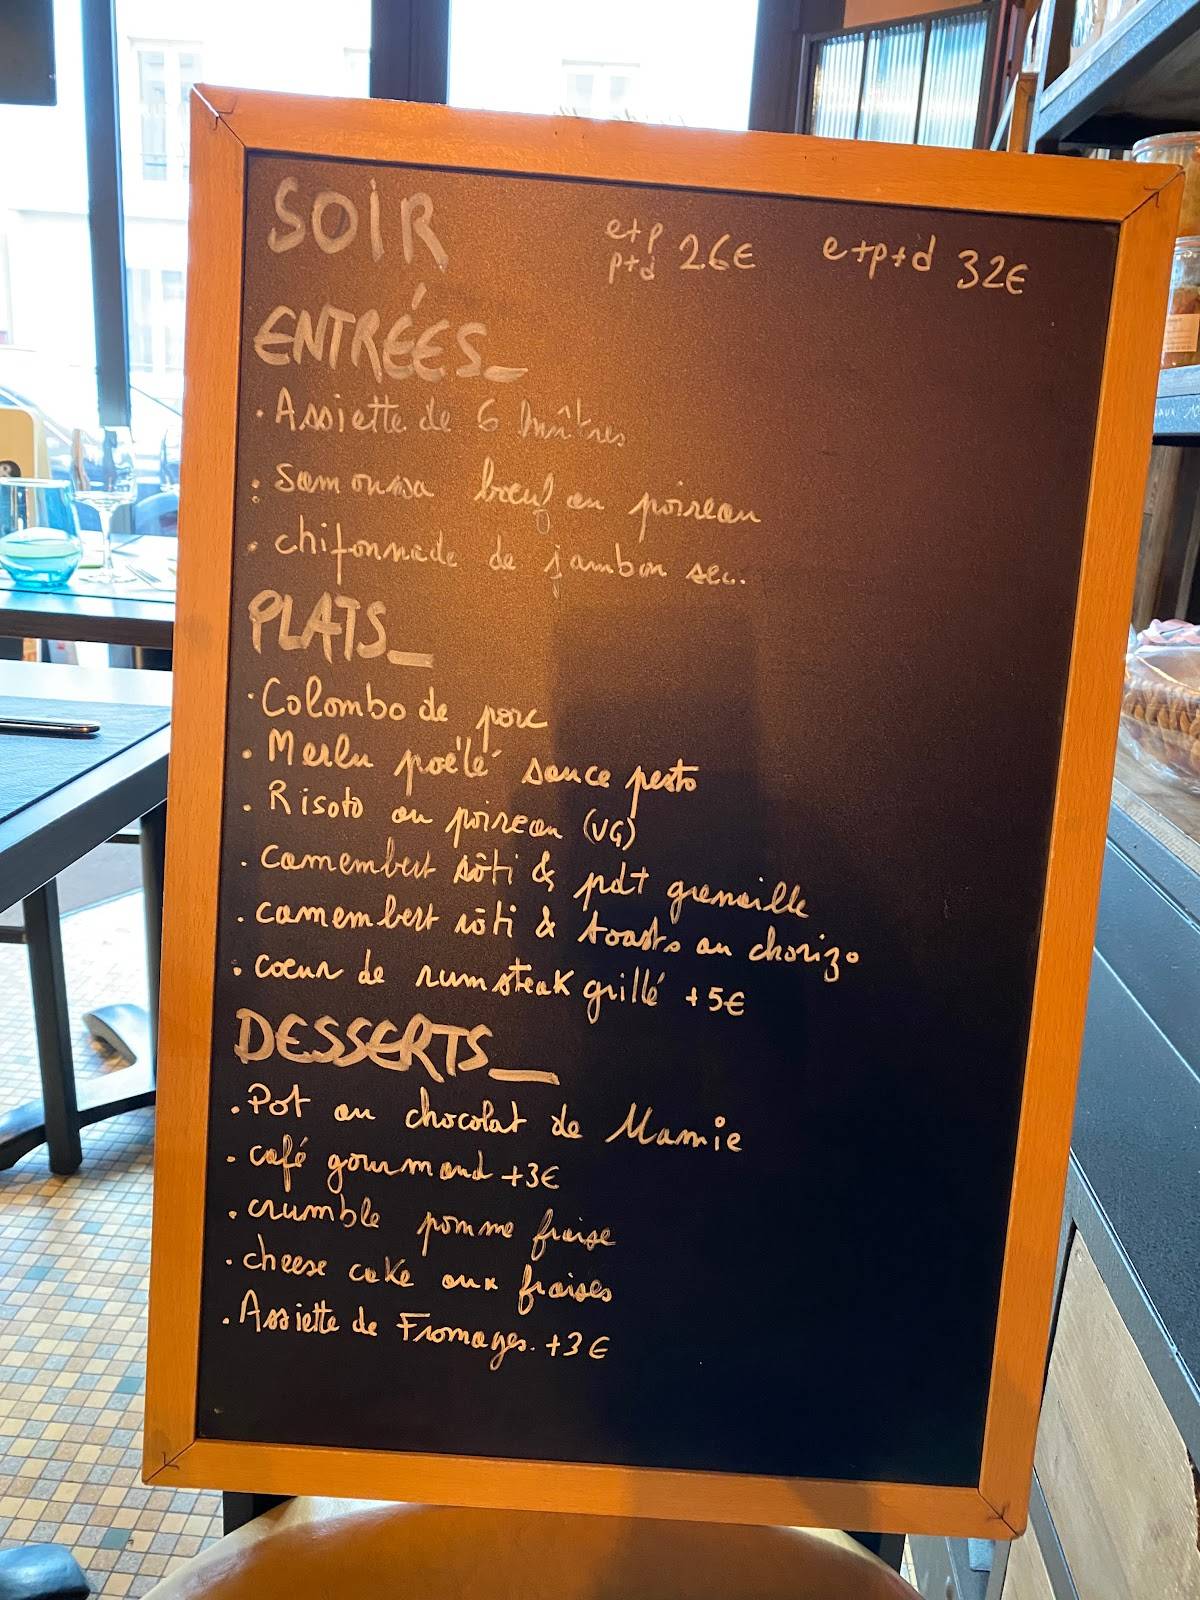 SOIR
e+p
p+d 26€
e+p+d 32€
ENTRÉES_
. Assiette de 6 huîtres
. Samoussa boeuf au poireau
. chifonnade de jambon sec.
PLATS_
. Colombo de porc
. Merlu poêlé sauce pesto
. Risoto au poireau (VG)
. camembert rôti & pdt grenaille
. camembert rôti & toasts au chorizo
. coeur de rumsteak grillé +5€
DESSERTS_
. Pot au chocolat de Mamie
. café gourmand +3€
. crumble pomme fraise
. cheese cake aux fraises
. Assiette de Fromages. +3€